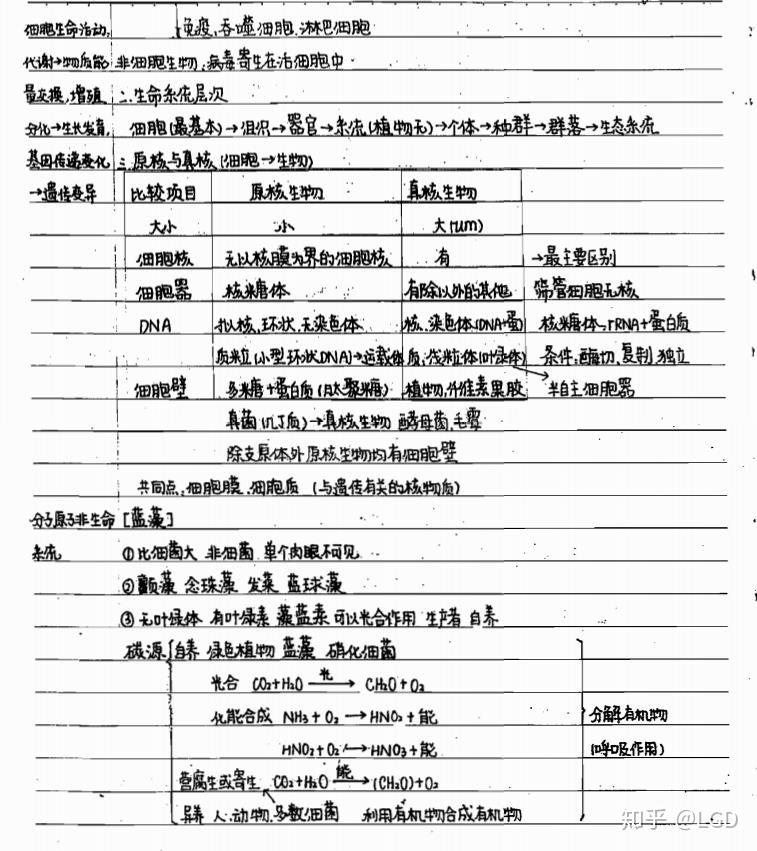 细胞生命活动: 免疫,吞噬细胞.淋巴细胞
代谢→物质能 非细胞生物:病毒寄生在活细胞中
量交换,增殖 二.生命系统层次
分化→生长发育, 细胞(最基本)→组织→器官→系统(植物无)→个体→种群→群落→生态系统
基因传递变化 三.原核与真核(细胞→生物)
→遗传变异 比较项目 原核生物 真核生物
大小 小 大(um)
细胞核 无以核膜为界的细胞核 有 →最主要区别
细胞器 核糖体 有除以外的其他 筛管细胞无核
DNA 拟核.环状.无染色体 核.染色体(DNA+蛋) 核糖体→rRNA+蛋白质
质粒(小型环状DNA)→运载体 质:线粒体(叶绿体) 条件:酶切.复制.独立
细胞壁 多糖+蛋白质(肽聚糖) 植物.纤维素果胶 半自主细胞器
真菌(几丁质)→真核生物 酵母菌.毛霉
除支原体外原核生物均有细胞壁
共同点:细胞膜.细胞质 (与遗传有关的核物质)
分子原子非生命 [蓝藻]
系统 ①比细菌大 非细菌 单个肉眼不可见
②颤藻 念珠藻 发菜 蓝球藻
③无叶绿体 有叶绿素 藻蓝素 可以光合作用 生产者 自养
碳源 自养 绿色植物 蓝藻 硝化细菌
光合 CO₂+H₂O —光→ CH₂O+O₂
化能合成 NH₃+O₂→HNO₂+能 分解有机物
HNO₂+O₂→HNO₃+能 (呼吸作用)
营腐生或寄生 CO₂+H₂O —能→ (CH₂O)+O₂
异养 人.动物.多数细菌 利用有机物合成有机物
知乎 @LGD